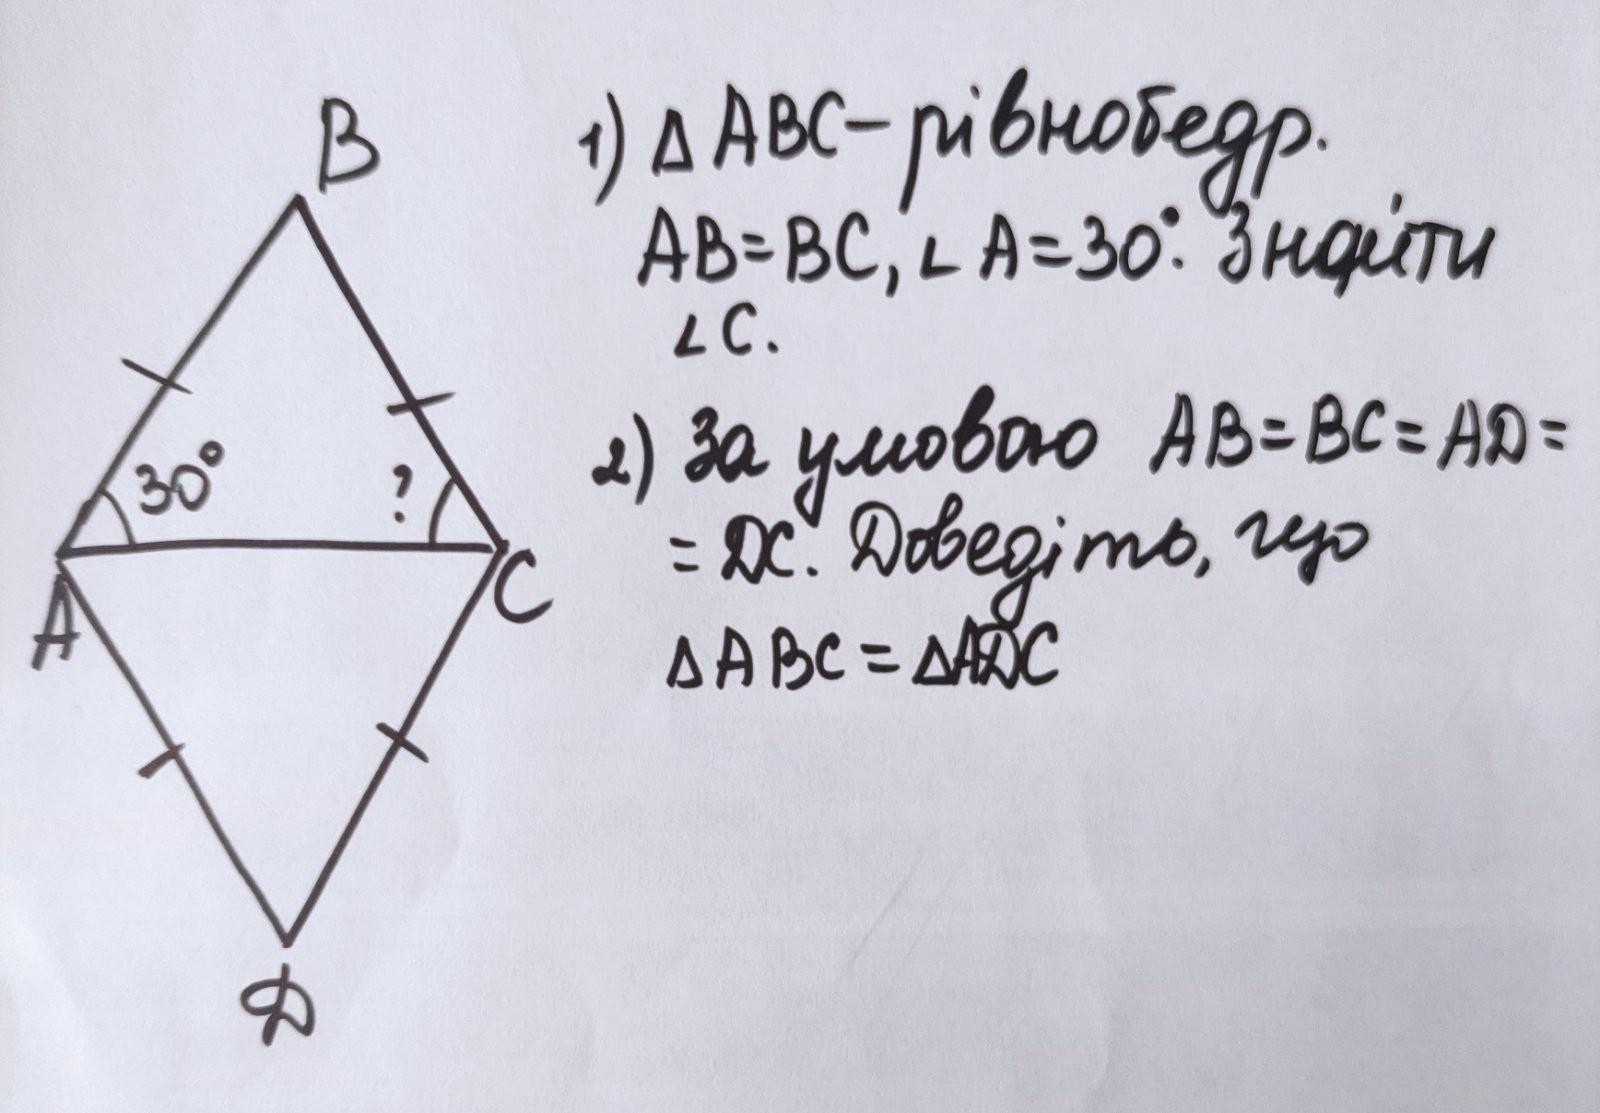 B
1) Δ ABC – рівнобедр.
AB = BC, ∠ A = 30°. Знайти
∠ C.
2) За умовою AB = BC = AD =
= DC. Доведіть, що
Δ ABC = Δ ADC
30°
?
A
C
D